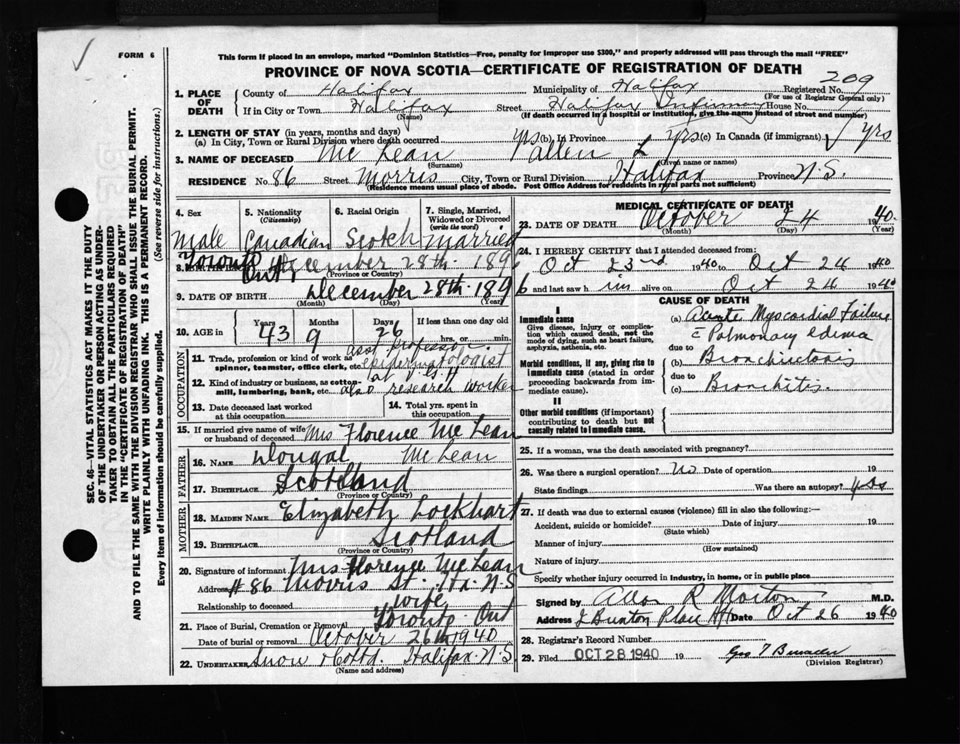 FORM 6
This form if placed in an envelope, marked "Dominion Statistics—Free, penalty for improper use $300," and properly addressed will pass through the mail "FREE"
PROVINCE OF NOVA SCOTIA—CERTIFICATE OF REGISTRATION OF DEATH
209
1. PLACE OF DEATH
County of Halifax Municipality of Halifax Registered No.
(For use of Registrar General only)
If in City or Town Halifax Street Halifax Infirmary House No.
(Name) (If death occurred in a hospital or institution, give the name instead of street and number)
2. LENGTH OF STAY (in years, months and days)
(a) In City, Town or Rural Division where death occurred yrs (b) In Province yrs (c) In Canada (if immigrant) yrs
3. NAME OF DECEASED Mc Lean Allen L
(Surname) (Given name or names)
RESIDENCE No. 86 Street Morris City, Town or Rural Division Halifax Province N.S.
(Residence means usual place of abode. Post Office Address for residents in rural parts not sufficient)
4. Sex 5. Nationality (Citizenship) 6. Racial Origin 7. Single, Married, Widowed or Divorced (write the word)
Male Canadian Scotch Married
8. BIRTHPLACE Toronto Ont December 28th. 189
(Province or Country)
9. DATE OF BIRTH December 28th. 1896
(Month) (Day) (Year)
10. AGE in Years Months Days If less than one day old
43 9 26 hrs. or min.
OCCUPATION
11. Trade, profession or kind of work as spinner, teamster, office clerk, etc. asst professor epidermatologist
12. Kind of industry or business, as cotton-mill, lumbering, bank, etc. also research worker
13. Date deceased last worked at this occupation
14. Total yrs. spent in this occupation
15. If married give name of wife or husband of deceased Mrs Florence Mc Lean
FATHER
16. NAME Dougal Mc Lean
17. BIRTHPLACE Scotland
(Province or Country)
MOTHER
18. MAIDEN NAME Elizabeth Lockhart
19. BIRTHPLACE Scotland
(Province or Country)
20. Signature of informant Mrs Florence Mc Lean
Address # 86 Morris St. Hx. N.S
Relationship to deceased wife
21. Place of Burial, Cremation or Removal Toronto Ont
Date of burial or removal October 26th 1940
22. UNDERTAKER Snow & Co Ltd. Halifax. N.S
(Name and address)
MEDICAL CERTIFICATE OF DEATH
23. DATE OF DEATH October 24 1940
(Month) (Day) (Year)
24. I HEREBY CERTIFY that I attended deceased from:
Oct 23rd 1940 to Oct 24 1940
and last saw him alive on Oct 24 1940
CAUSE OF DEATH
I
Immediate cause
Give disease, injury or complication which caused death, not the mode of dying, such as heart failure, asphyxia, asthenia, etc.
(a) Acute Myocardial Failure
c Pulmonary edema
due to
Morbid conditions, if any, giving rise to immediate cause (stated in order proceeding backwards from immediate cause).
(b) Bronchiectasis
due to
(c) Bronchitis.
II
Other morbid conditions (if important) contributing to death but not causally related to immediate cause.
25. If a woman, was the death associated with pregnancy?
26. Was there a surgical operation? No Date of operation 19
State findings Was there an autopsy? yes
27. If death was due to external causes (violence) fill in also the following:—
Accident, suicide or homicide? Date of injury 19
(State which)
Manner of injury
(How sustained)
Nature of injury
Specify whether injury occurred in industry, in home, or in public place
Signed by Allan R Morton M.D.
Address Place Hfx Date Oct 26 1940
28. Registrar's Record Number
29. Filed OCT 28 1940 19 Geo T
(Division Registrar)
SEC. 46—VITAL STATISTICS ACT MAKES IT THE DUTY
OF THE UNDERTAKER OR PERSON ACTING AS UNDER-
TAKER TO OBTAIN ALL THE PARTICULARS REQUIRED
IN THE "CERTIFICATE OF REGISTRATION OF DEATH"
AND TO FILE THE SAME WITH THE DIVISION REGISTRAR WHO SHALL ISSUE THE BURIAL PERMIT.
WRITE PLAINLY WITH UNFADING INK. THIS IS A PERMANENT RECORD.
Every item of information should be carefully supplied. (See reverse side for instructions.)